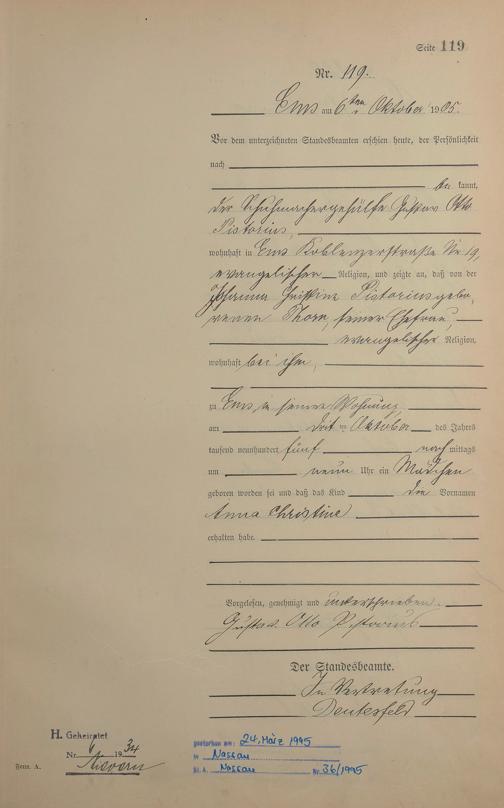 Seite 119
Nr. 119.
Ems am 6ten Oktober 1905.
Vor dem unterzeichneten Standesbeamten erschien heute, der Persönlichkeit
nach
be kannt,
der Schuhmachergehülfe Gustav Otto
Pistorius,
wohnhaft in Ems Koblenzerstraße Nr 19,
evangelischer Religion, und zeigte an, daß von der
Johanna Pistorius gebo-
renen Thorn, seiner Ehefrau,
evangelischer Religion,
wohnhaft bei ihm,
zu Ems, in seiner Wohnung
am ten Oktober des Jahrs
tausend neunhundert fünf nach mittags
um neun Uhr ein Mädchen
geboren worden sei und daß das Kind die Vornamen
Anna Christine
erhalten habe.
Vorgelesen, genehmigt und unterschrieben.
Gustav Otto Pistorius
Der Standesbeamte.
In Vertretung
H. Geheiratet
Nr. 6 1934
Form. A.
gestorben am: 24. März 1995
in Nassau
St.A. Nassau Nr. 36/1995